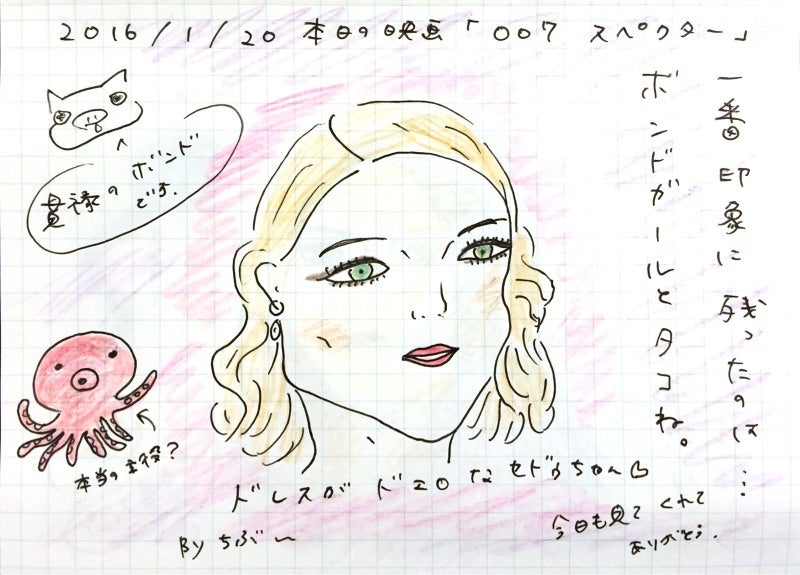 2016/1/20 本日の映画「007 スペクター」
一番印象に残ったのは…
ボンドガールとタコね。
貫禄のボンド
です.
本当の主役?
ドレスがドエロなセドゥちゃん
By ちぶ〜
今日も見てくれて
ありがとう.